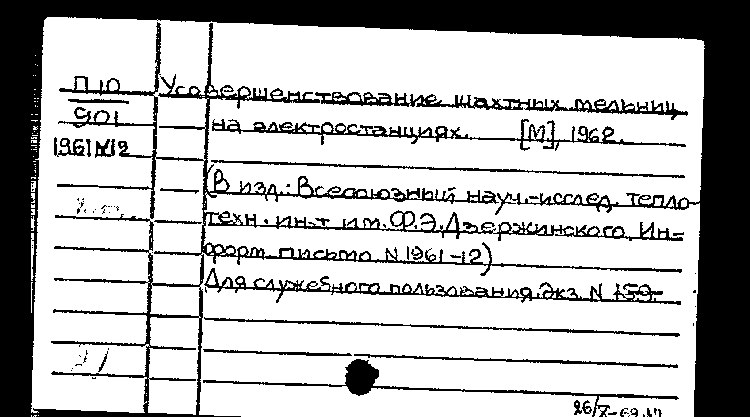 П 10 Усовершенствование шахтных мельниц
901 на электростанциях. [М], 1962.
1961 N12
(В изд.: Всесоюзный науч.-исслед. тепло-
техн. ин-т им. Ф.Э. Дзержинского. Ин-
форм. письмо N 1961-12)
Для служебного пользования. Экз. N 159